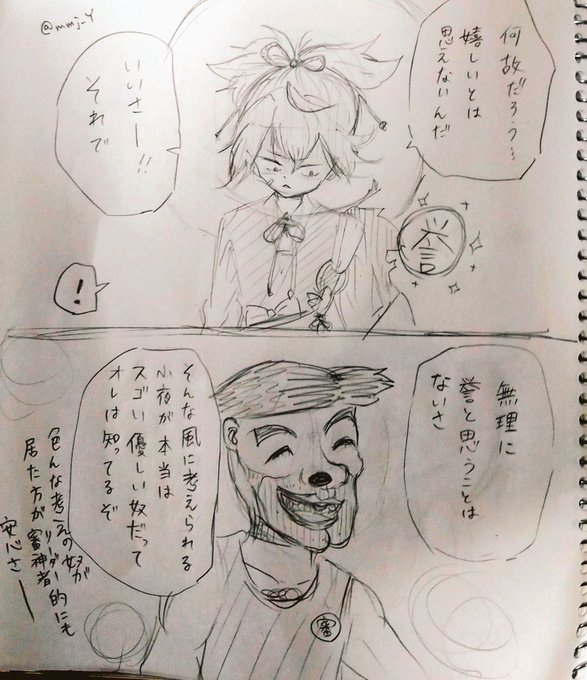 @mmj_Y
何故だろう…
嬉しいとは
思えないんだ
いいさー!!
それで
誉
!
無理に
誉と思うことは
ないさ
そんな風に考えられる
小夜が本当は
スゴい優しい奴だって
オレは知ってるぞ
色んな考えの奴が
居た方が審神者
リーダー的にも
安心さー
審